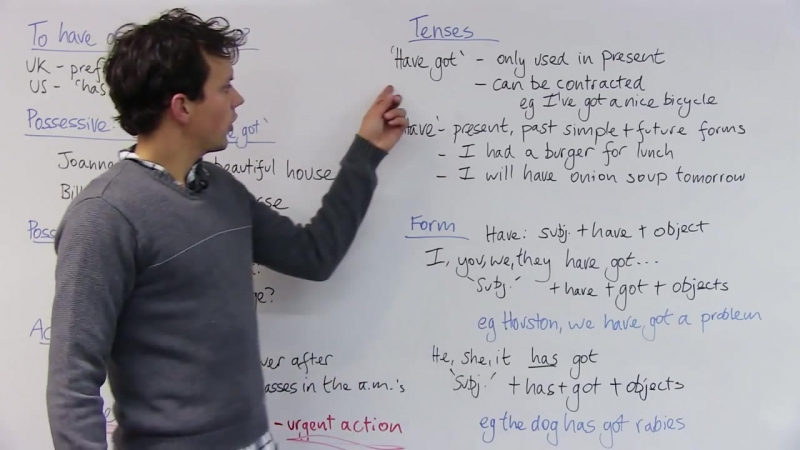 To have
UK - pref
US - 'has
Possessive: got'
Joanna beautiful house
Bill
Poss
ge?
Ac
ver after
asses in the a.m.'s
- urgent action
Tenses
'Have got' - only used in present
- can be contracted
eg I've got a nice bicycle
Have' - present, past simple + future forms
- I had a burger for lunch
- I will have onion soup tomorrow
Form Have: subj. + have + object
I, you, we, they have got...
'Subj.' + have + got + objects
eg Houston, we have got a problem
He, she, it has got
'Subj.' + has + got + objects
eg the dog has got rabies